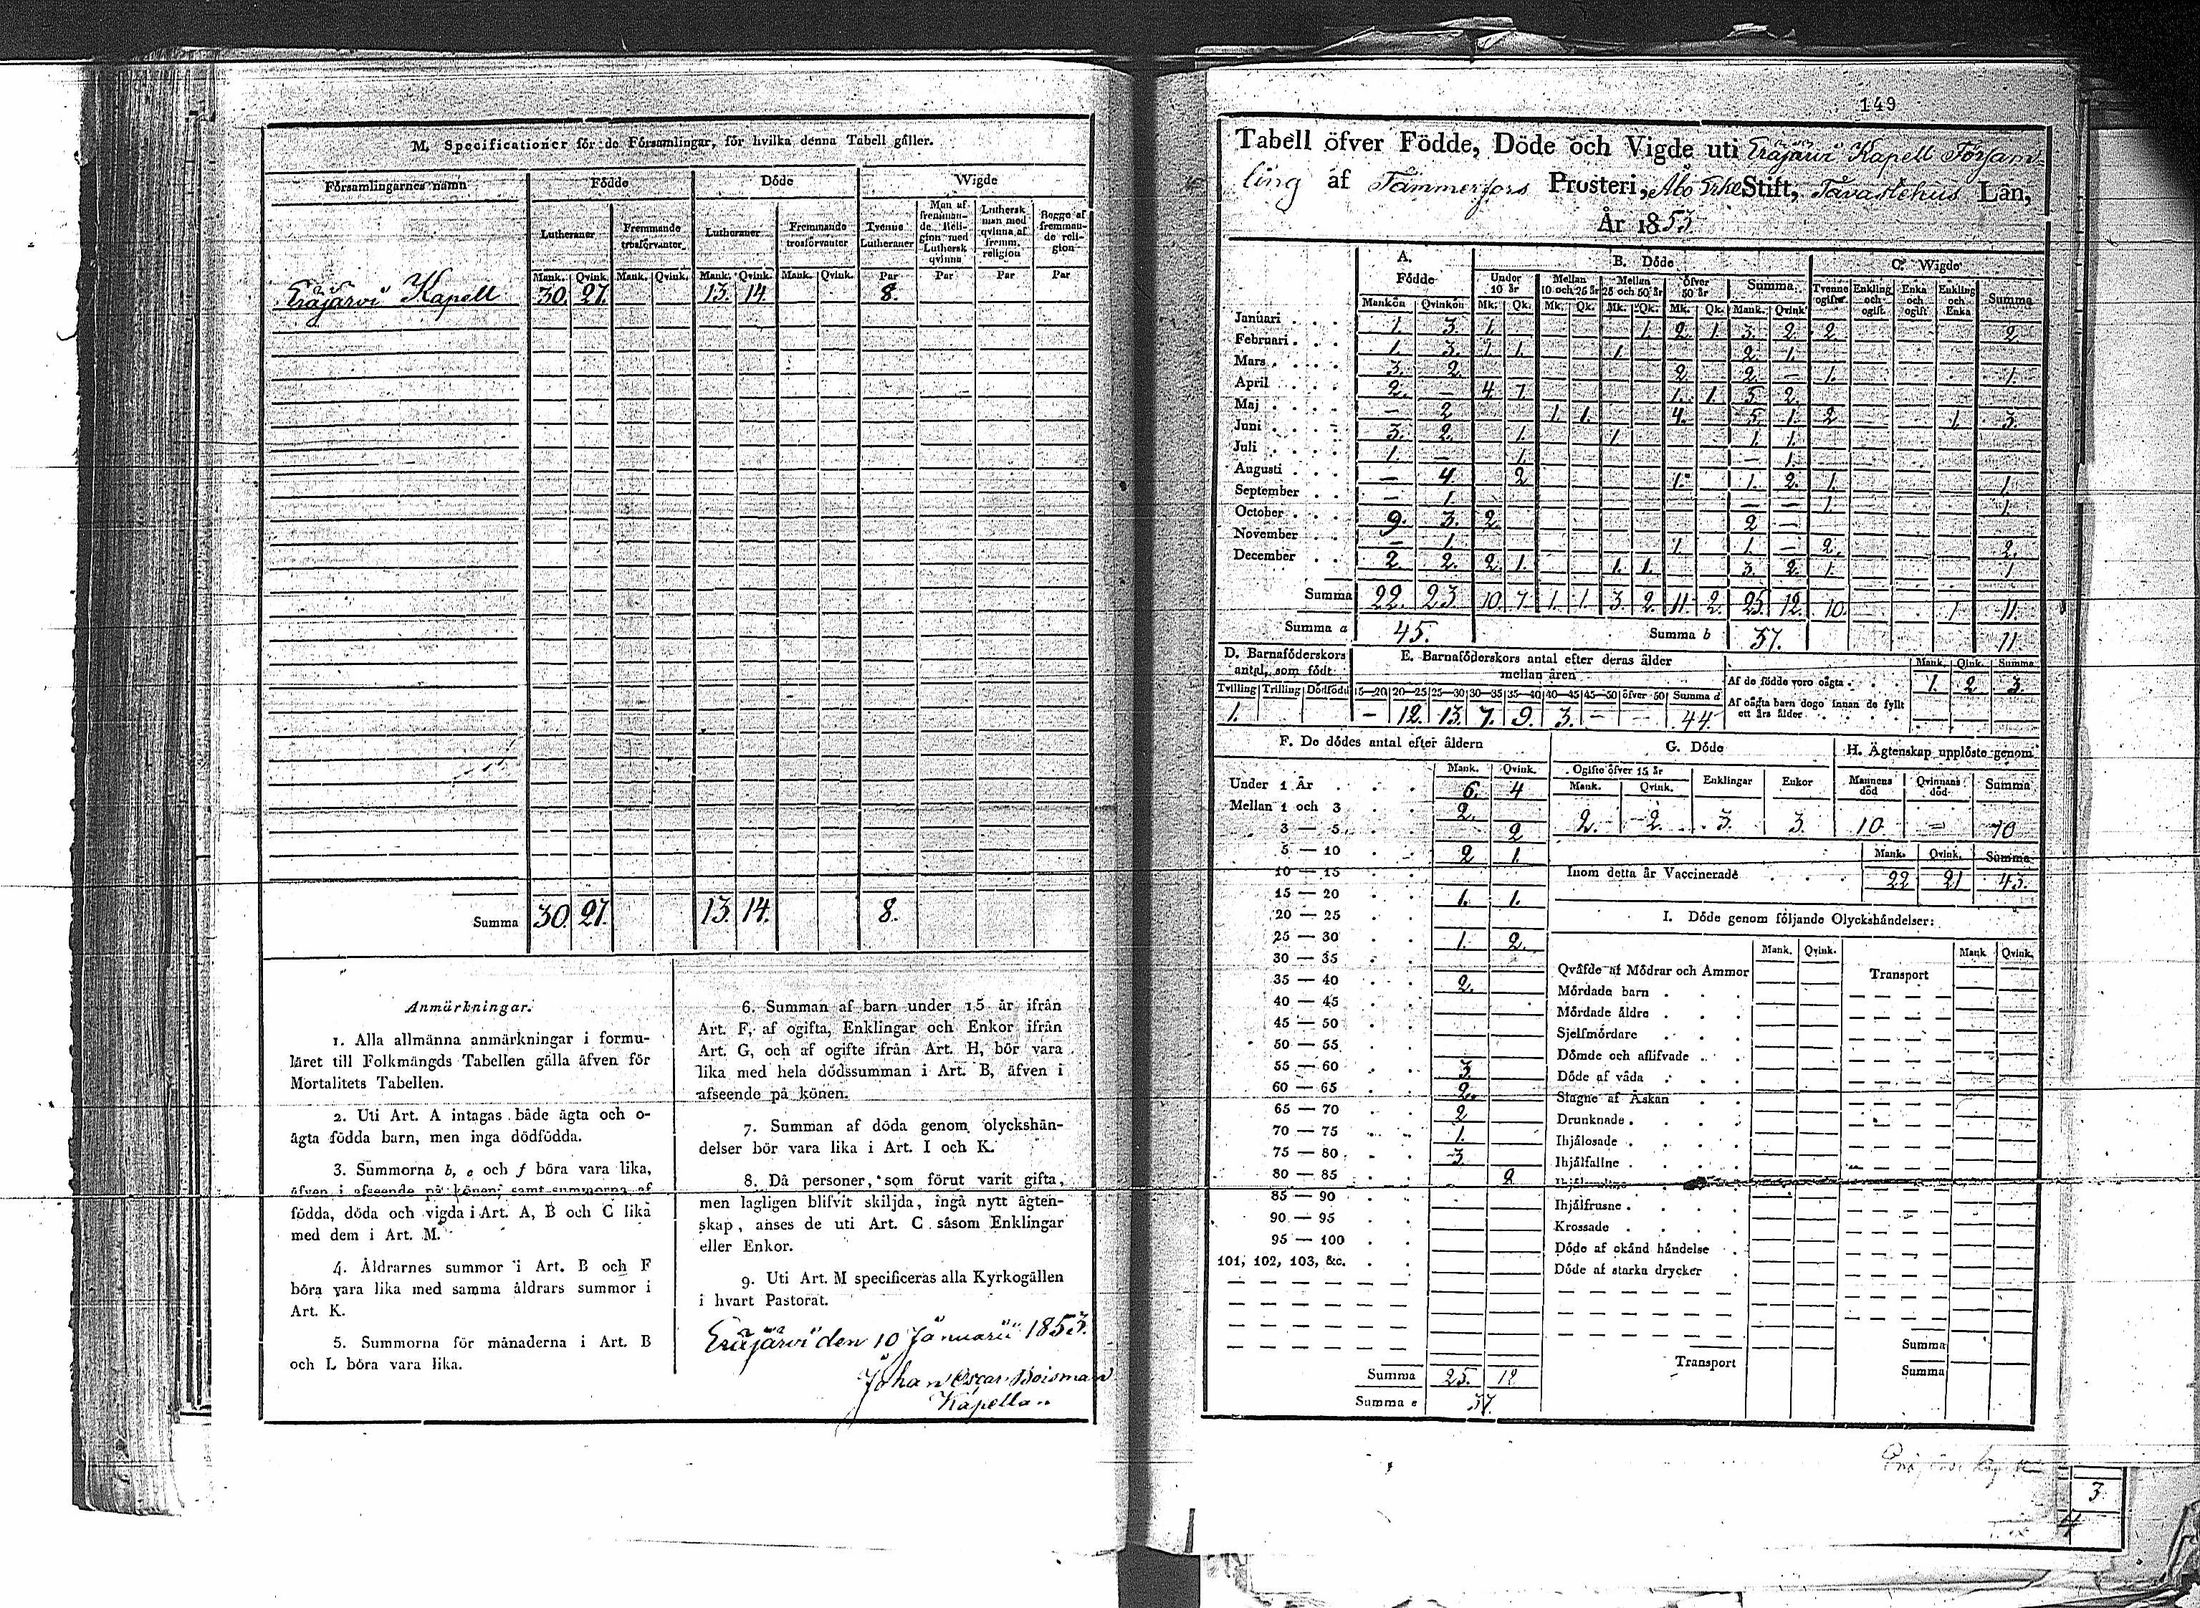 M. Specificationer för de Församlingar, för hvilka denna Tabell gäller.
Församlingarnes namn Födde Döde Wigde
Lutheraner Fremmande trosförvanter Lutheraner Fremmande trosförvanter Tvenne Lutheraner Man af fremmande Religion med Luthersk qvinna Luthersk man med qvinna af fremm. religion Begge af fremmande religion
Mank. Qvink. Mank. Qvink. Mank. Qvink. Mank. Qvink. Par Par Par Par
Eräjärvi Kapell 30. 27. 13. 14. 8.
Summa 30. 27. 13. 14. 8.
Anmärkningar.
1. Alla allmänna anmärkningar i formu-
läret till Folkmängds Tabellen gälla äfven för
Mortalitets Tabellen.
2. Uti Art. A intagas både ägta och o-
ägta födda barn, men inga dödfödda.
3. Summorna b, e och f böra vara lika,
äfven i afseende på könen; samt summorna af
födda, döda och vigda i Art. A, B och C lika
med dem i Art. M.
4. Åldrarnes summor i Art. B och F
böra vara lika med samma åldrars summor i
Art. K.
5. Summorna för månaderna i Art. B
och L böra vara lika.
6. Summan af barn under 15 år ifrån
Art. F, af ogifta, Enklingar och Enkor ifrån
Art. G, och af ogifte ifrån Art. H, bör vara
lika med hela dödssumman i Art. B, äfven i
afseende på könen.
7. Summan af döda genom olyckshän-
delser bör vara lika i Art. I och K.
8. Då personer, som förut varit gifta,
men lagligen blifvit skiljda, ingå nytt ägten-
skap, anses de uti Art. C såsom Enklingar
eller Enkor.
9. Uti Art. M specificeras alla Kyrkogällen
i hvart Pastorat.
Eräjärvi den 10 Januarii 1853.
Johan Oscar Boisman
Kapellan
149
Tabell öfver Födde, Döde och Vigde uti Eräjärvi Kapell Försam-
ling af Tammerfors Prosteri, Åbo Erke Stift, Tavastehus Län,
År 1853
A. Födde B. Döde C. Wigde
Under 10 år Mellan 10 och 25 år Mellan 25 och 50 år Öfver 50 år Summa Tvenne ogifte Enkling och ogift Enka och ogift Enkling och Enka Summa
Mankön Qvinkön Mk. Qk. Mk. Qk. Mk. Qk. Mk. Qk. Mank. Qvink
Januari 1. 3. 1. 1. 2. 1. 3. 2. 2. 2.
Februari 1. 3. 1. 1. 1. 2. 1.
Mars 3. 2. 2. 2. — 1. 1.
April 2. — 4. 1. 1. 1. 5. 2.
Maj — 2 1. 1. 4. 5. 1. 2 1. 3.
Juni 3. 2. 1. 1. 1. 1.
Juli 1. — 1. — 1.
Augusti — 4. 2 1. 1. 2. 1. 1.
September — 1. — — 1. 1.
October 9. 3. 2. 2 —
November — 1. 1. 1. — 2. 2.
December 2. 2. 2. 1. 1. 1. 3. 2. 1. 1
Summa 22. 23. 10. 7. 1. 1. 3. 2. 11. 2. 25. 12. 10. 1 11.
Summa a 45. Summa b 37. 11
D. Barnaföderskors antal, som födt E. Barnaföderskors antal efter deras ålder mellan åren
Mank. Qink. Summa
Tvilling Trilling Dödfödd 15—20 20—25 25—30 30—35 35—40 40—45 45—50 öfver 50 Summa d
1. — 12. 13. 7. 9. 3. — — 44.
Af de födde voro oägta 1. 2 3.
Af oägta barn dogo innan de fyllt
ett års ålder
F. De dödes antal efter åldern
Mank. Qvink.
Under 1 År 6. 4
Mellan 1 och 3 2.
3 — 5 2
5 — 10 2 1.
10 — 15
15 — 20 1. 1.
20 — 25
25 — 30 1. 2.
30 — 35
35 — 40 2.
40 — 45
45 — 50
50 — 55
55 — 60 3.
60 — 65 2.
65 — 70 2
70 — 75 1.
75 — 80 3.
80 — 85 2.
85 — 90
90 — 95
95 — 100
101, 102, 103, &c.
Summa 25. 12
Summa e 37.
G. Döde
Ogifte öfver 15 år Enklingar Enkor
Mank. Qvink.
2. 2. 3. 3.
H. Ägtenskap upplöste genom
Mannens död Qvinnans död Summa
10 — 10
Mank. Qvink. Summa
Inom detta år Vaccinerade 22 21 43.
I. Döde genom följande Olyckshändelser:
Mank. Qvink. Mank Qvink.
Qväfde af Mödrar och Ammor Transport
Mördade barn
Mördade äldre
Sjelfmördare
Dömde och aflifvade
Döde af våda
Slagne af Åskan
Drunknade
Ihjälosade
Ihjälfallne
Ihjälfrusne
Krossade
Döde af okänd händelse
Döde af starka drycker
Summa
Transport Summa
3
4